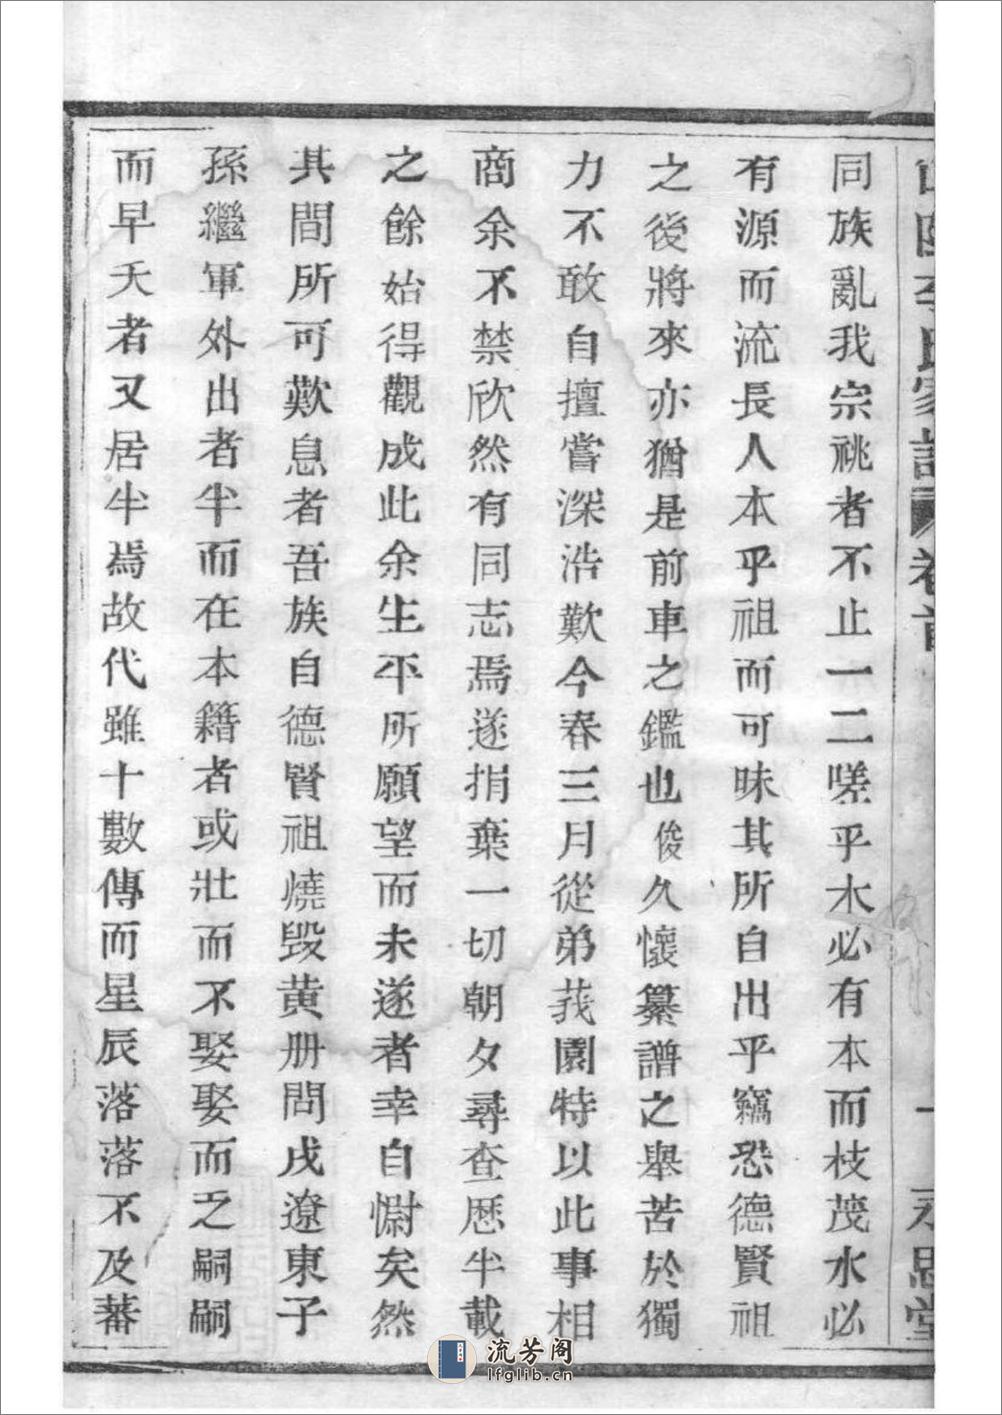 李氏家譜 卷首 一 永思堂
同族亂我宗祧者不止一二嗟乎木必有本而枝茂水必
有源而流長人本乎祖而可昧其所自出乎竊恐德賢祖
之後將來亦猶是前車之鑑也俊久懷纂譜之舉苦於獨
力不敢自擅嘗深浩歎今春三月從弟莪園特以此事相
商余不禁欣然有同志焉遂捐棄一切朝夕尋查歷半載
之餘始得觀成此余生平所願望而未遂者幸自慰矣然
其間所可歎息者吾族自德賢祖燒毀黃册問戍遼東子
孫繼軍外出者半而在本籍者或壯而不娶娶而乏嗣嗣
而早夭者又居半焉故代雖十數傳而星辰落落不及蕃
流芳阁
lfglib.cn